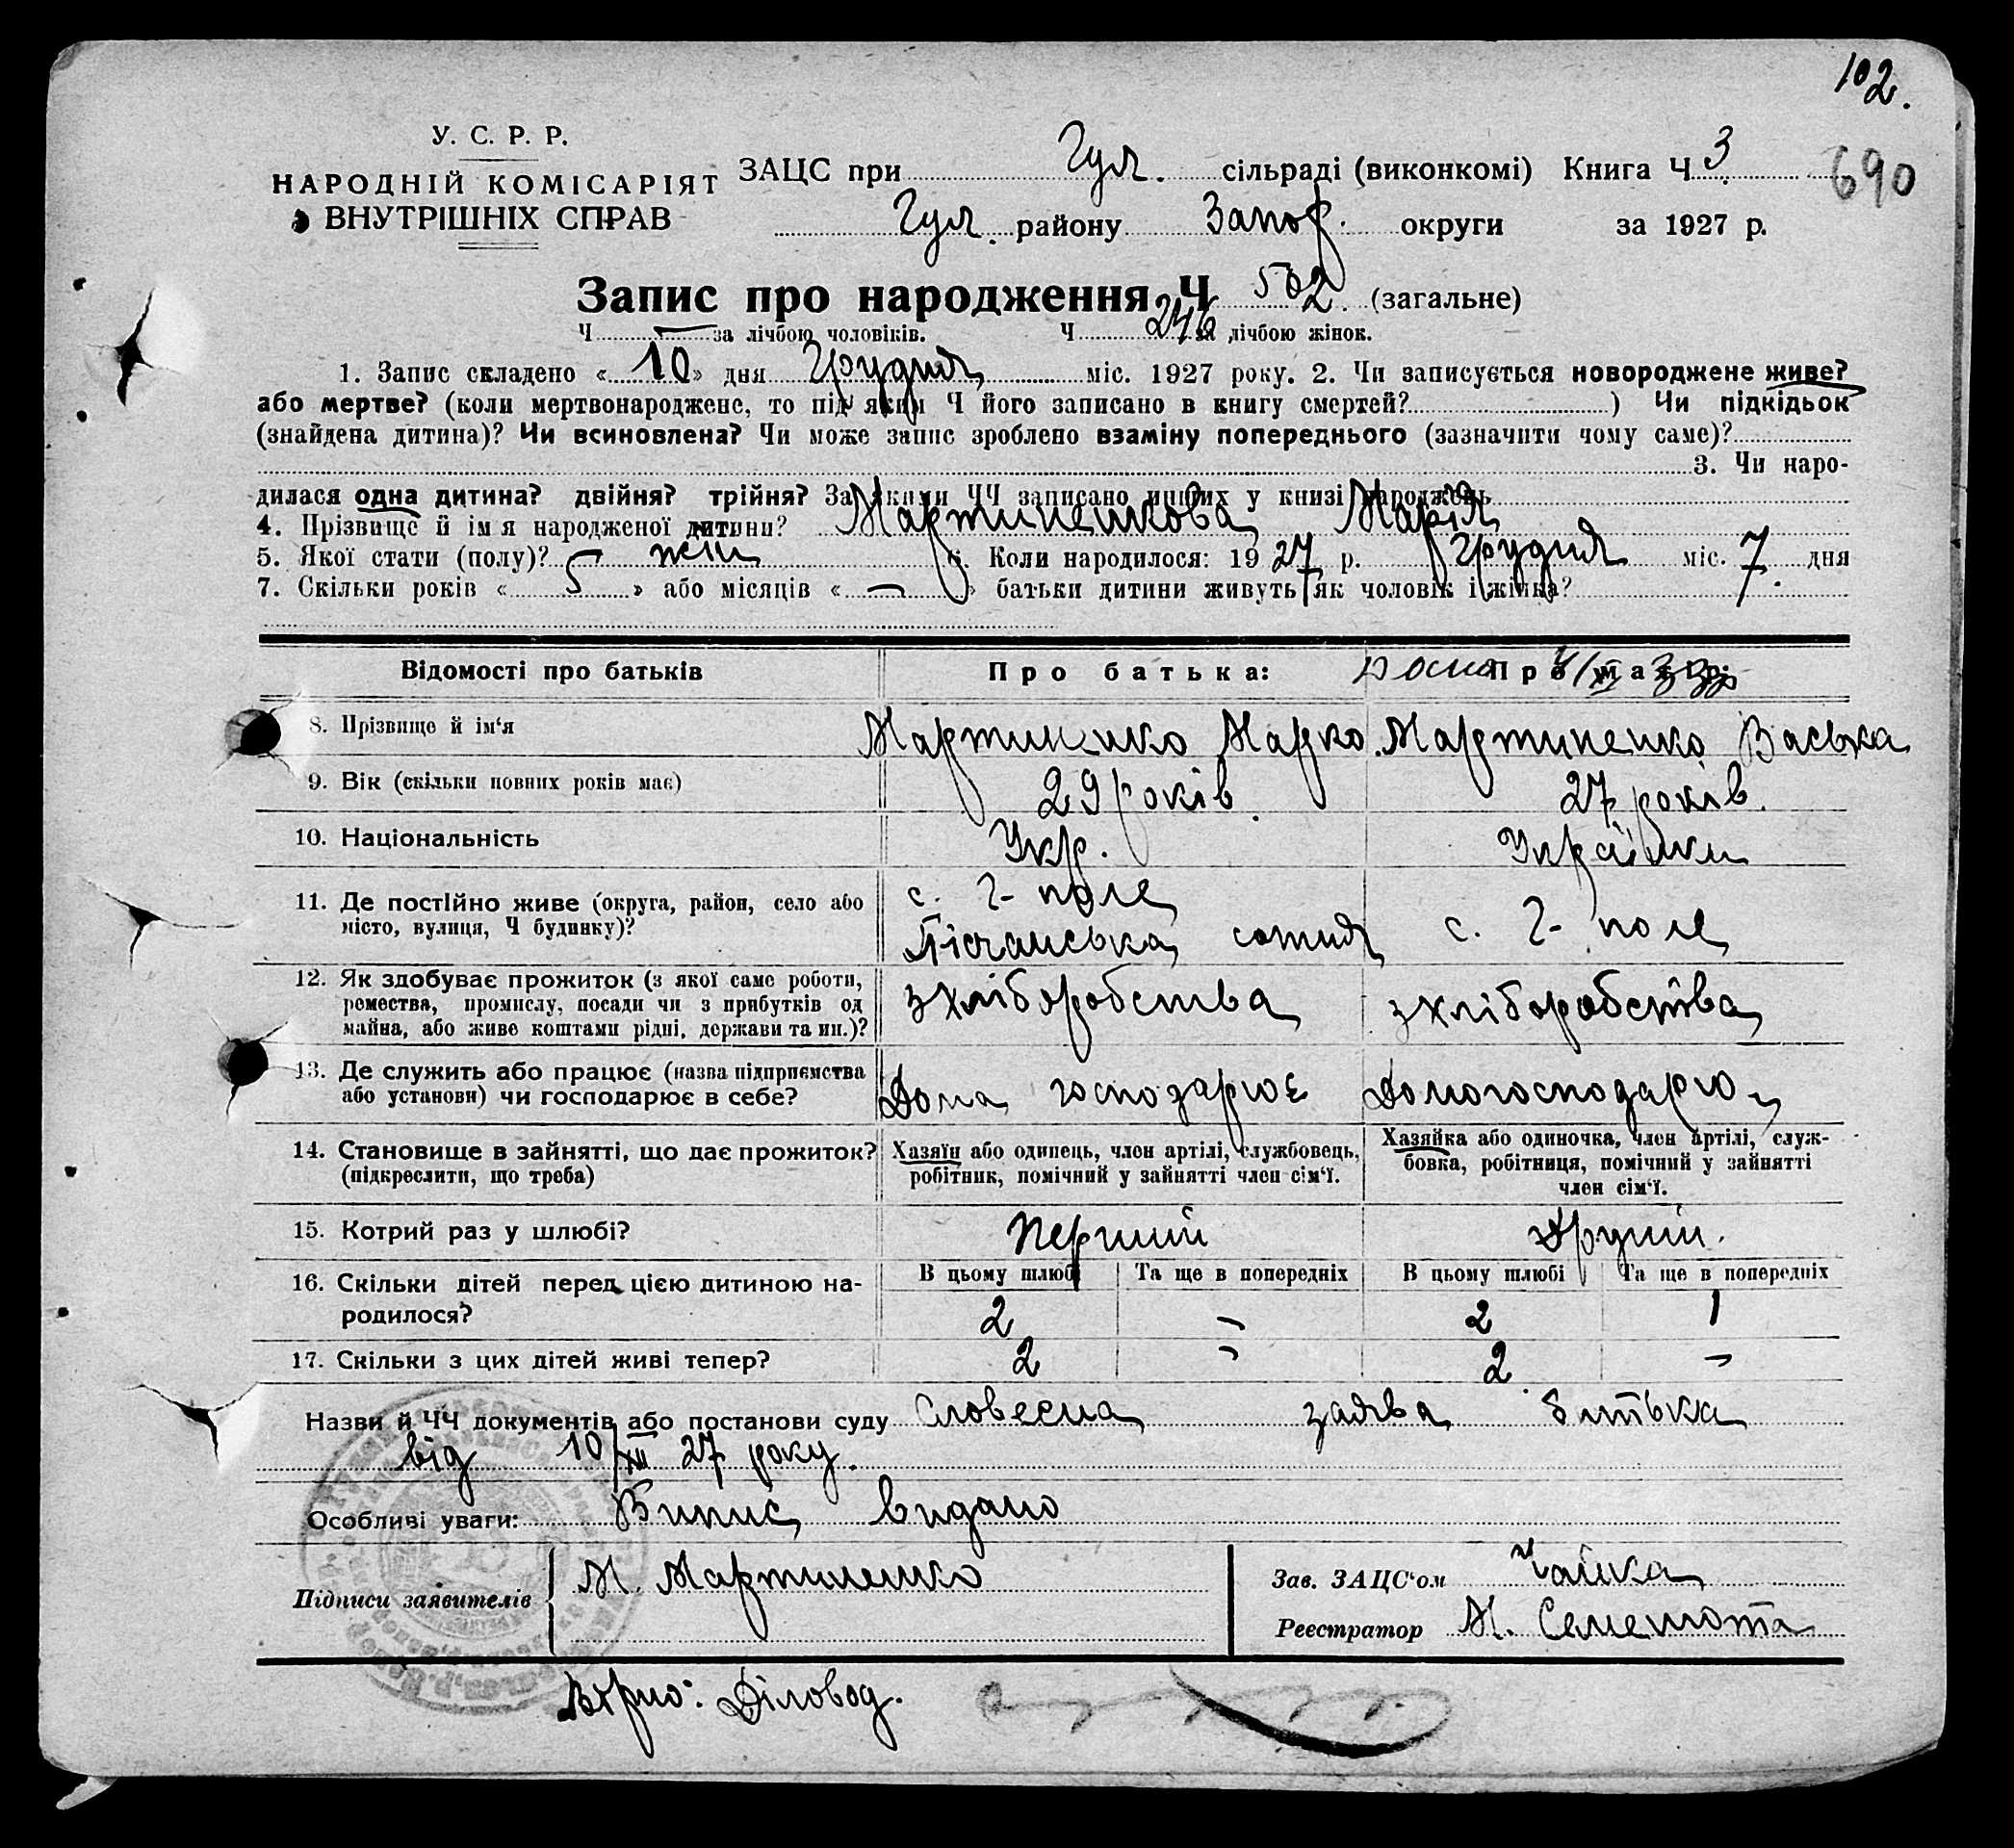 102.
690
У. С. Р. Р.
НАРОДНІЙ КОМІСАРІЯТ
ВНУТРІШНІХ СПРАВ
ЗАЦС при Гул. сільраді (виконкомі) Книга Ч 3
Гул. району Запор. округи за 1927 р.
Запис про народження Ч 502 (загальне)
Ч — за лічбою чоловіків. Ч 246 за лічбою жінок.
1. Запис складено «10» дня Грудня міс. 1927 року. 2. Чи записується новороджене живе?
або мертве? (коли мертвонароджене, то під яким Ч його записано в книгу смертей? ) Чи підкідьок
(знайдена дитина)? Чи всиновлена? Чи може запис зроблено взаміну попереднього (зазначити чому саме)?
3. Чи наро-
дилася одна дитина? двійня? трійня? За якими ЧЧ записано инших у книзі народжень
4. Прізвище й ім я народженої дитини? Мартиненкова Марія
5. Якої стати (полу)? жін 6. Коли народилося: 1927 р. Грудня міс. 7 дня
7. Скільки років « 5 » або місяців « — » батьки дитини живуть як чоловік і жінка?
Відомості про батьків Про батька: Про матір:
8. Прізвище й ім‘я Мартиненко Марко. Мартиненко Васька
9. Вік (скільки повних років має) 29 років 27 років.
10. Національність Укр. Українки
11. Де постійно живе (округа, район, село або
місто, вулиця, Ч будинку)?
с. Г-поле
Пісчанська сотня с. Г-поле
12. Як здобуває прожиток (з якої саме роботи,
ремества, промислу, посади чи з прибутків од
майна, або живе коштами рідні, держави та ин.)?
з хліборобства з хліборобства
13. Де служить або працює (назва підприємства
або установи) чи господарює в себе?
Дома господарює Домогосподарю
14. Становище в зайнятті, що дає прожиток?
(підкреслити, що треба)
Хазяїн або одинець, член артілі, службовець,
робітник, помічний у зайнятті член сім‘ї.
Хазяйка або одиночка, член артілі, служ-
бовка, робітниця, помічний у зайнятті
член сім‘ї.
15. Котрий раз у шлюбі? Перший Другий.
16. Скільки дітей перед цією дитиною на-
родилося?
В цьому шлюбі Та ще в попередніх В цьому шлюбі Та ще в попередніх
2 – 2 1
17. Скільки з цих дітей живі тепер? 2 – 2 –
Назви й ЧЧ документів або постанови суду Словесна заява батька
від 10/XII 27 року.
Особливі уваги: Випис видано
Підписи заявителів М. Мартиненко
Зав. ЗАЦС‘ом Чайка
Реєстратор М. Семенота
Вірно: Діловод.